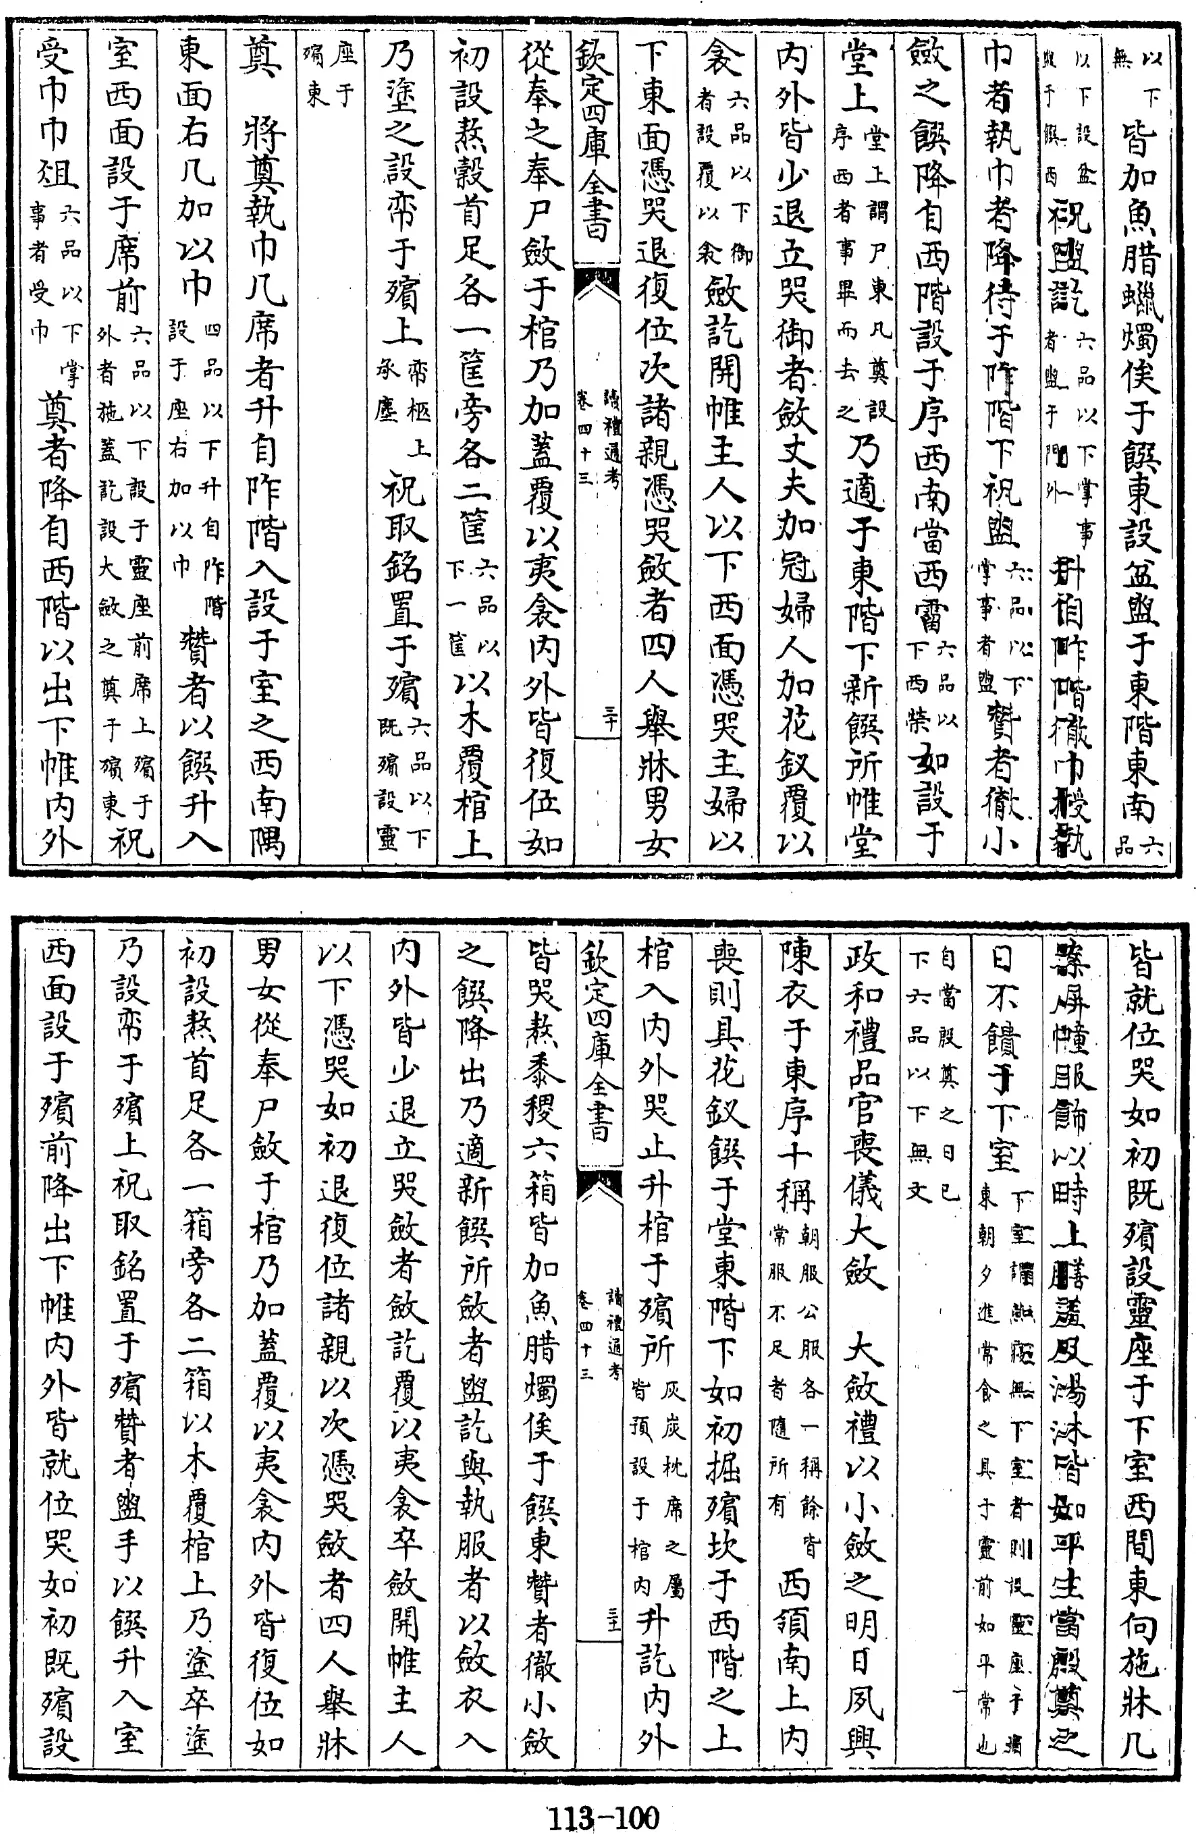 以下無皆加魚腊蠟燭俟于饌東設盆盥于東階東南六品
以下設盆盥于饌西祝盥訖六品以下掌事者盥于門外升自阼階徹巾授執
巾者執巾者降待于阼階下祝盥六品以下掌事者盥贊者徹小
斂之饌降自西階設于序西南當西霤六品以下西榮如設于
堂上堂上謂尸東凡奠設序西者事畢而去之乃適于東階下新饌所帷堂
内外皆少退立哭御者斂丈夫加冠婦人加花釵覆以
衾六品以下御者設覆以衾斂訖開帷主人以下西面憑哭主婦以
下東面憑哭退復位次諸親憑哭斂者四人舉牀男女
欽定四庫全書 讀禮通考 卷四十三 三十
從奉之奉尸斂于棺乃加蓋覆以夷衾内外皆復位如
初設熬穀首足各一筐旁各二筐六品以下一筐以木覆棺上
乃塗之設帟于殯上帟柩上承塵祝取銘置于殯六品以下既殯設靈
座于殯東
奠 將奠執巾几席者升自阼階入設于室之西南隅
東面右几加以巾四品以下升自阼階設于座右加以巾贊者以饌升入
室西面設于席前六品以下設于靈座前席上殯于外者施蓋訖設大斂之奠于殯東祝
受巾巾俎六品以下掌事者受巾奠者降自西階以出下帷内外
皆就位哭如初既殯設靈座于下室西間東向施牀几
案屏幛服飾以時上膳羞及湯沐皆如平生當殷奠之
日不饋于下室下室謂燕寢無下室者則設靈座于殯東朝夕進常食之具于靈前如平常也
自當殷奠之日已下六品以下無文
政和禮品官喪儀大斂 大斂禮以小斂之明日夙興
陳衣于東序十稱朝服公服各一稱餘皆常服不足者隨所有西領南上内
喪則具花釵饌于堂東階下如初掘殯坎于西階之上
棺入内外哭止升棺于殯所灰炭枕席之屬皆預設于棺内升訖内外
欽定四庫全書 讀禮通考 卷四十三 三十一
皆哭熬黍稷六箱皆加魚腊燭俟于饌東贊者徹小斂
之饌降出乃適新饌所斂者盥訖與執服者以斂衣入
内外皆少退立哭斂者斂訖覆以夷衾卒斂開帷主人
以下憑哭如初退復位諸親以次憑哭斂者四人舉牀
男女從奉尸斂于棺乃加蓋覆以夷衾内外皆復位如
初設熬首足各一箱旁各二箱以木覆棺上乃塗卒塗
乃設帟于殯上祝取銘置于殯贊者盥手以饌升入室
西面設于殯前降出下帷内外皆就位哭如初既殯設
113-100